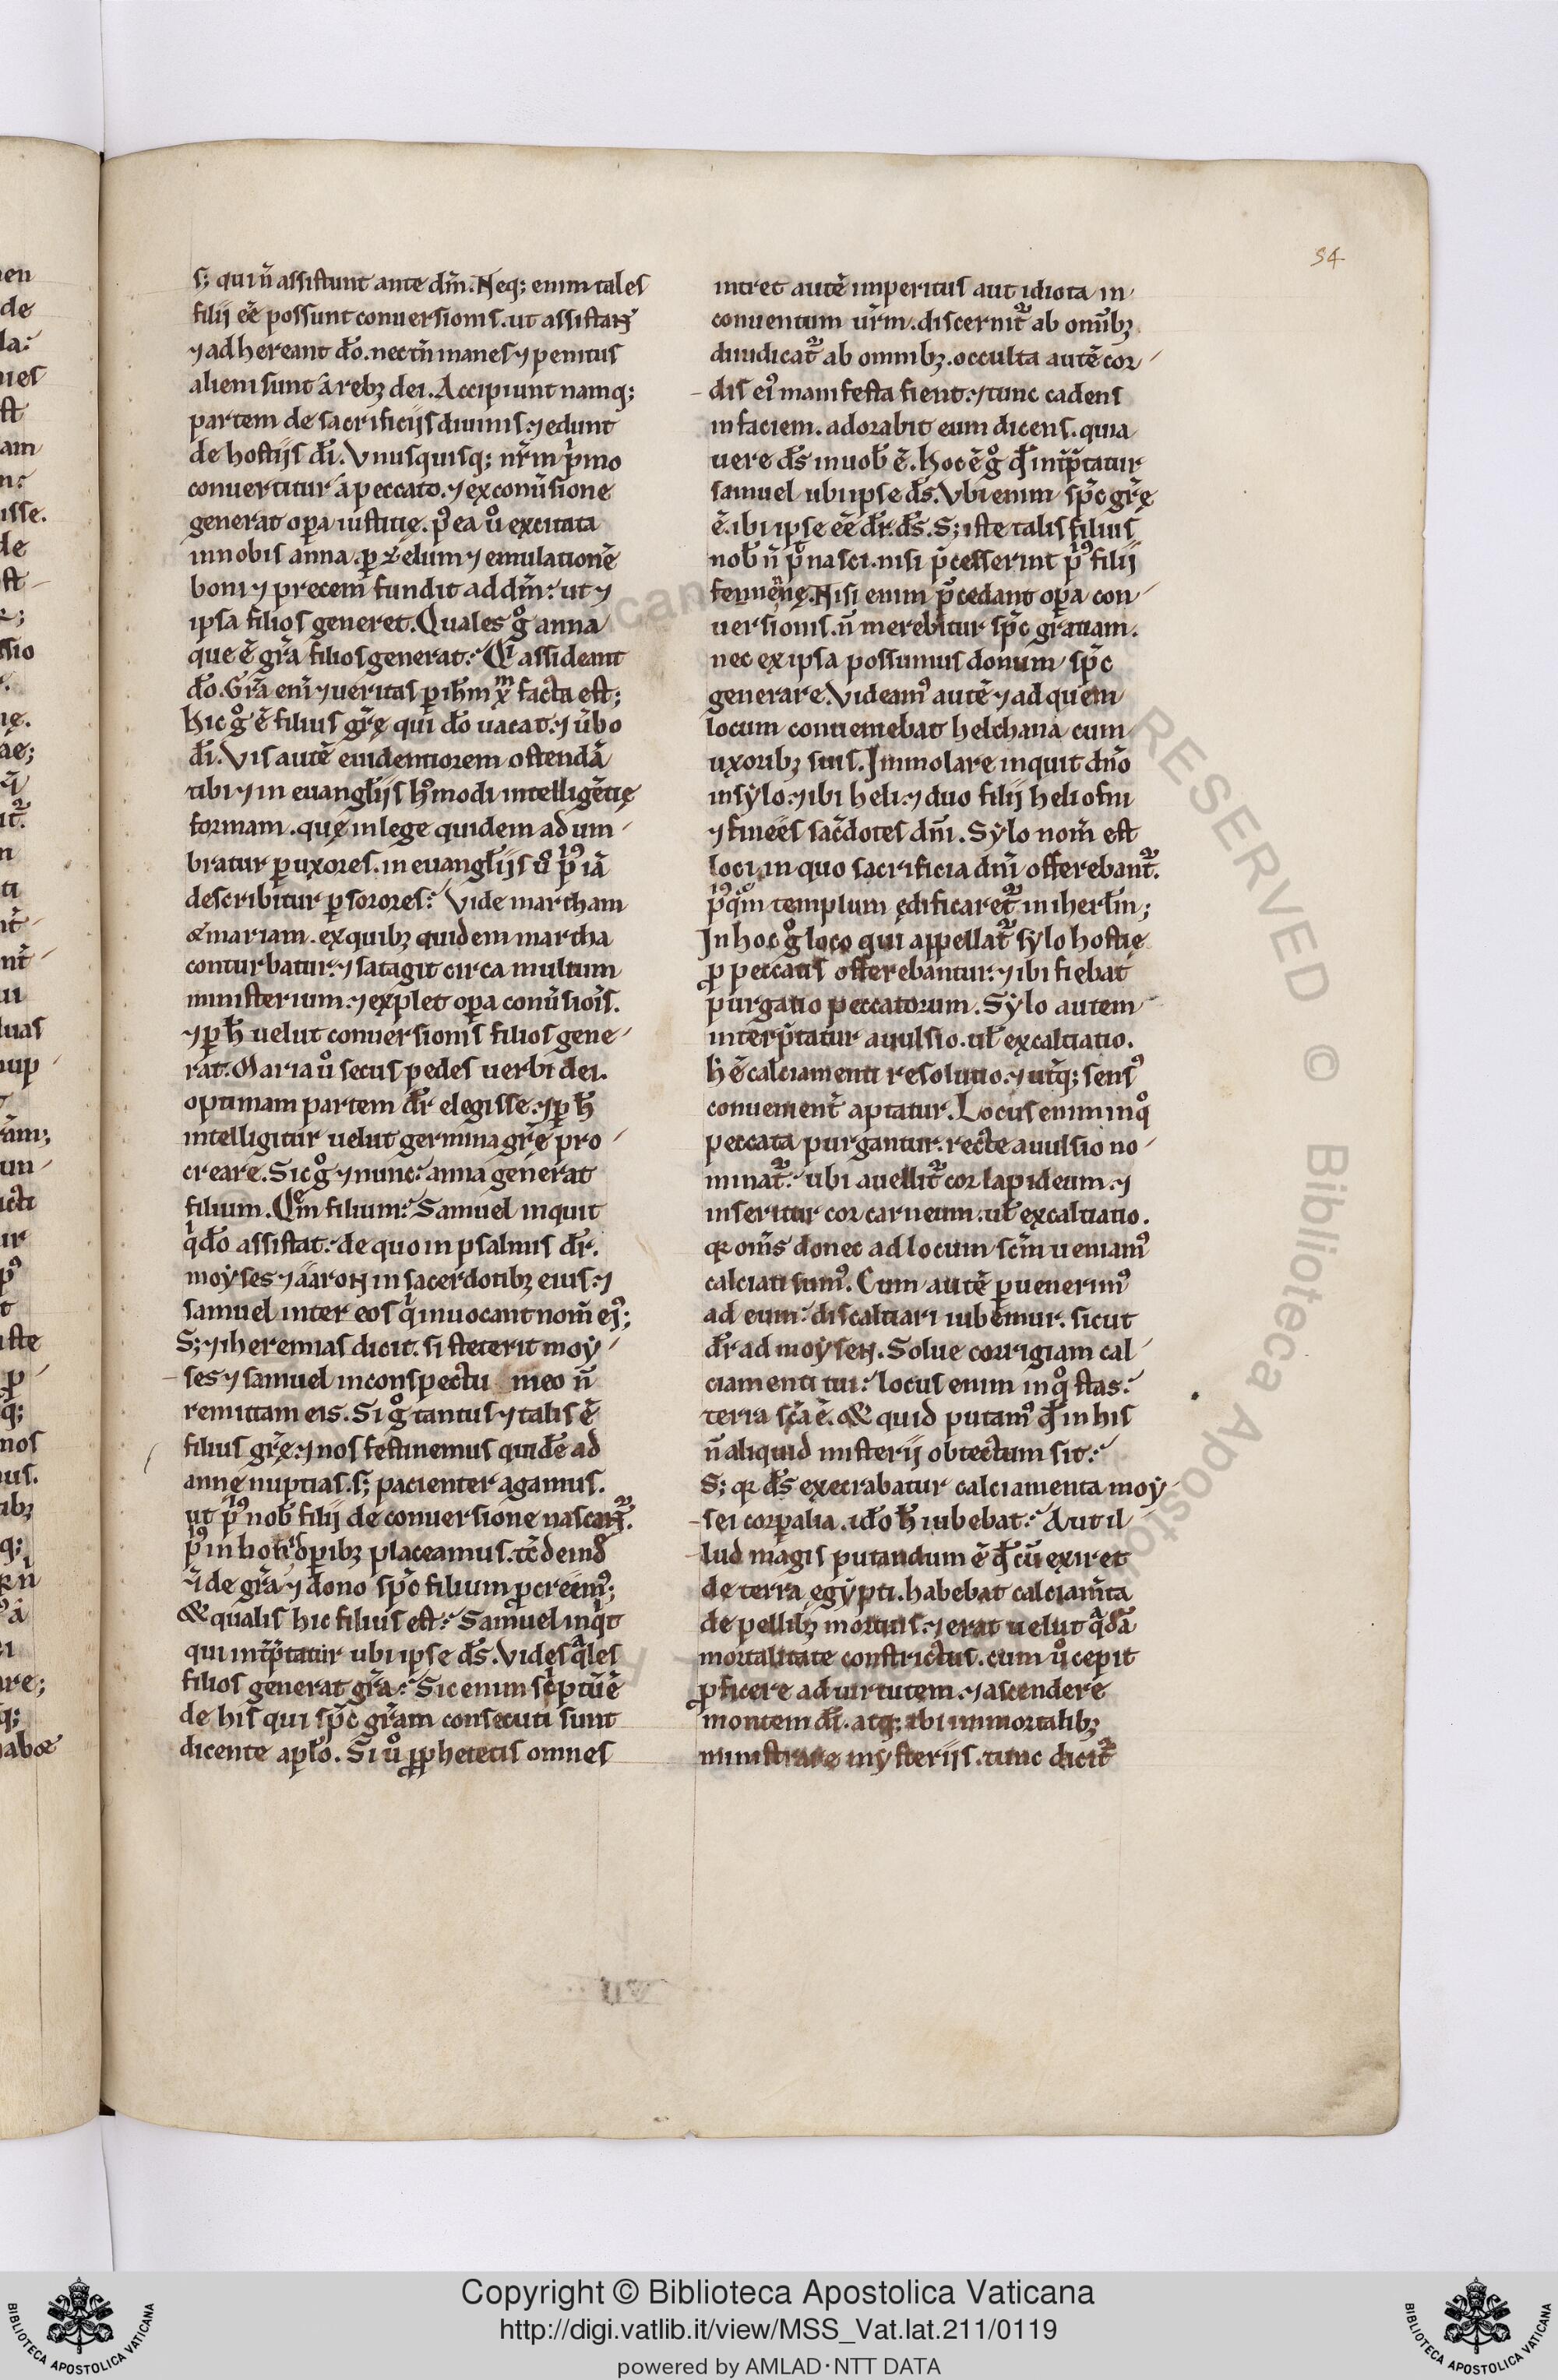 54
s; qui n̄ assistunt ante dm̄. Neq; enim tales
filii eē possunt conuersionis. ut assistant
⁊ adhereant dō. nec tn̄ inanes ⁊ penitus
alieni sunt a reb; dei. Accipiunt namq;
partem de sacrificiis diuinis. ⁊ edunt
de hostiis dī. Vnusquisq; nr̄m p̄mo
conuertitur a peccato. ⁊ ex conūsione
generat opa iustitię. pꝰ ea uͦ excitata
in nobis anna. p zelum ⁊ emulationē
boni ⁊ precem fundit ad dm̄. ut ⁊
ipsa filios generet. Quales gͦ anna
que ē gr̄a filios generat? Qi assideant
dō. Gr̄a eni ⁊ ueritas p ih̄m xm̄ facta est;
Hic gͦ ē filius gr̄ę qui dō uacat. ⁊ ūbo
dī. Vis autē euidentiorem ostendā
tibi ⁊ in euangliis hꝰmodi intelligētię
formam. quę in lege quidem adum
bratur p uxores. in euangliis uͦ pꝰ iā
describitur p sorores? Vide martham
& mariam. ex quib; quidem martha
conturbatur. ⁊ satagit circa multum
ministerium. ⁊ explet opa conūsiois̄.
⁊ p h̄ uelut conuersionis filios gene
rat. Maria uͦ secus pedes uerbi dei.
optimam partem dr̄ elegisse. ⁊ p h̄
intelligitur uelut germina gr̄ę pro
creare. Sic gͦ ⁊ nunc. anna generat
filium. Qm̄ filium? Samuel inquit
qͥ dō assistat. de quo in psalmis dr̄.
moyses ⁊ aaron in sacerdotib; eius. ⁊
samuel inter eos qͥ inuocant nom̄ eiꝰ;
S; ⁊ iheremias dicit. si steterit moy
ses ⁊ samuel in conspectu meo n̄
remittam eis. Si gͦ tantus ⁊ talis ē
filius gr̄ę. ⁊ nos festinemus quidē ad
annę nuptias. s; pacienter agamus.
ut pͥꝰ nob̄ filii de conuersione nascant̄.
pͥꝰ in bonis opib; placeamus. tc̄ deinde
ī de gr̄a ⁊ dono sp̄c filium pcreemꝰ;
& qualis hic filius est? Samuel inqͥt
qui intp̄tatur ubi ipse ds̄. Vides qͣles
filios generat gr̄a? Sic enim scͥptū ē
de his qui sp̄c gr̄am consecuti sunt
dicente aplō. Si uͦ pphetetis omnes
intret autē imperitus aut idiota in
conuentum ur̄m. discernit̄ ab omīb;
diuidicat̄ ab omnib;. occulta autē cor
dis eiꝰ manifesta fient. ⁊ tunc cadens
in faciem. adorabit eum dicens. quia
uere ds̄ in uob̄ ē. Hoc ē gͦ qd̄ intp̄tatur
samuel ubi ipse ds̄. Vbi enim sp̄c gr̄ę
ē. ibi ipse eē dr̄. ds̄. S; iste talis filius
nob̄ n̄ pͭ nasci. nisi p̄cesserint pͥꝰ filii
fennēnę. Nisi enim p̄cedant opa con
uersionis. n̄ merebitur sp̄c gratiam.
nec ex ipsa possumus donum sp̄c
generare. Videamꝰ autē ⁊ ad quem
locum contiemebat helchana cum
uxorib; suis. Immolare inquit dn̄o
in sylo. ⁊ ibi heli. ⁊ duo filii heli ofni
⁊ finees sac̄dotes dn̄i. Sylo nom̄ est
loci. in quo sacrificia dn̄i offerebant̄.
pͥꝰqͣm templum ędificaret̄ in iherlm̄;
In hoc gͦ loco qui appellat̄ sylo hostię
p peccatis offerebantur. ⁊ ibi fiebat
purgatio peccatorum. Sylo autem
interp̄tatur auulsio. ul̄ excaltiatio.
h̄ ē calciamenti resolutio. ⁊ utq̄; sensꝰ
conuenient̄ aptatur. Locus enim in qͦ
peccata purgantur. recte auulsio no
minat̄. ubi auellit̄ cor lapideum. ⁊
inseritur cor carneum. ul̄ excaltiatio.
qr om̄s donec ad locum scm̄ ueniamꝰ
calciati sumꝰ. Cum autē puenerimꝰ
ad eum. discaltiari iubemur. sicut
dr̄ ad moysen. Solue corrigiam cal
ciamenti tui. locus enim in qͦ stas.
terra scā ē. & quid putamꝰ qd̄ in his
n̄ aliquid misterii obtectum sit?
S; qr ds̄ execrabatur calciamenta moy
sei corpalia. idō h̄ iubebat? Aut il
lud magis putandum ē qd̄ cū exiret
de terra egypti. habebat calciam̄ta
de pellib; mortuis. ⁊ erat uelut qͣdā
mortalitate constrictus. cum uͦ cepit
pficere ad uirtutem. ⁊ ascendere
montem dī. atq; ibi immortalib;
ministrare mysteriis. tunc dicit̄
Copyright © Biblioteca Apostolica Vaticana
http://digi.vatlib.it/view/MSS_Vat.lat.211/0119
powered by AMLAD·NTT DATA